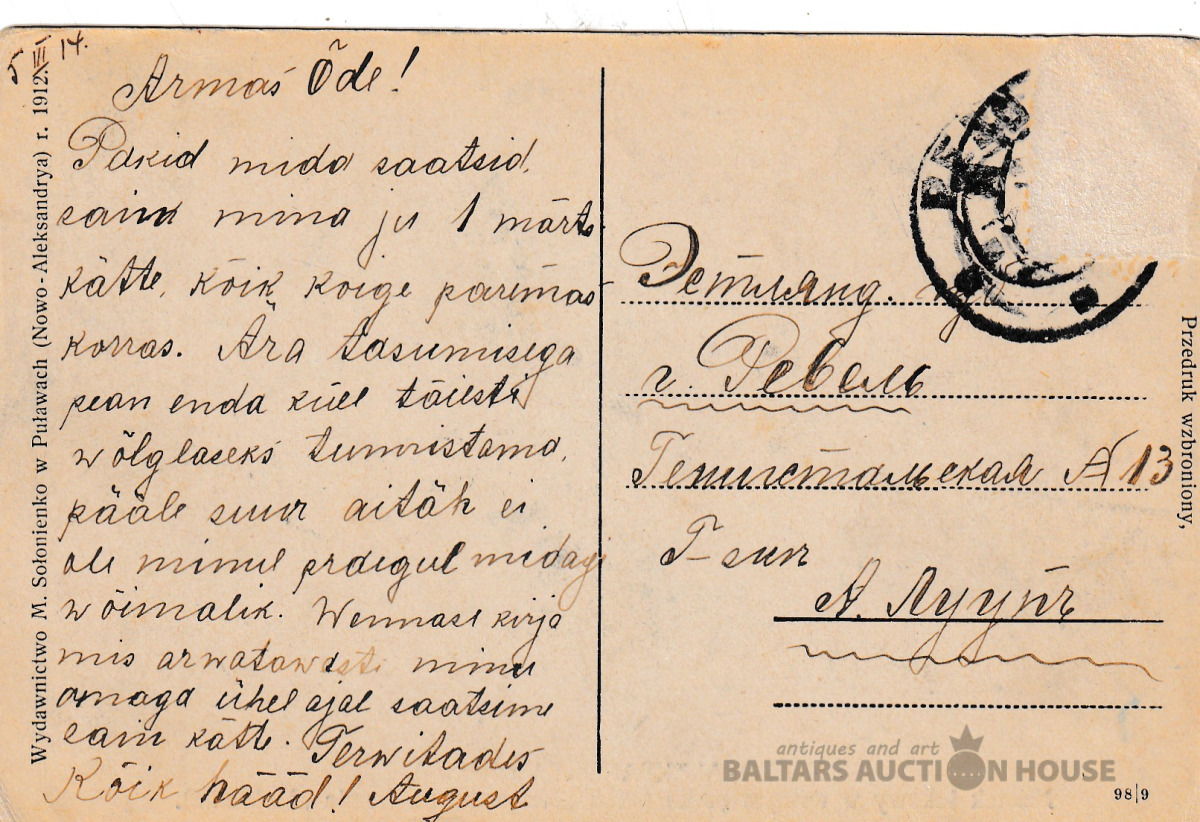 5 III 14.
Armas Õde!
Pakid mida saatsid,
sain mina ju 1 märts
kätte, kõik koige paremas
korras. Ära tasumisega
pean enda küll täiesti
wõlglaseks tunnistama,
pääle suur aitäh ei
ole minul praegul midagi
wõimalik. Wennase kirja
mis arwatawasti minu
omaga ühel ajal saatsime
sain kätte. Terwitades
Kõik hääd! August
Wydawnictwo M. Sołonienko w Puławach (Nowo-Aleksandrya) r. 1912.
Эстлянд. губ
г. Ревель
Генистальская № 13
Г-жин
А. Луупъ
Przedruk wzbroniony,
98|9
antiques and art
BALTARS AUCTION HOUSE